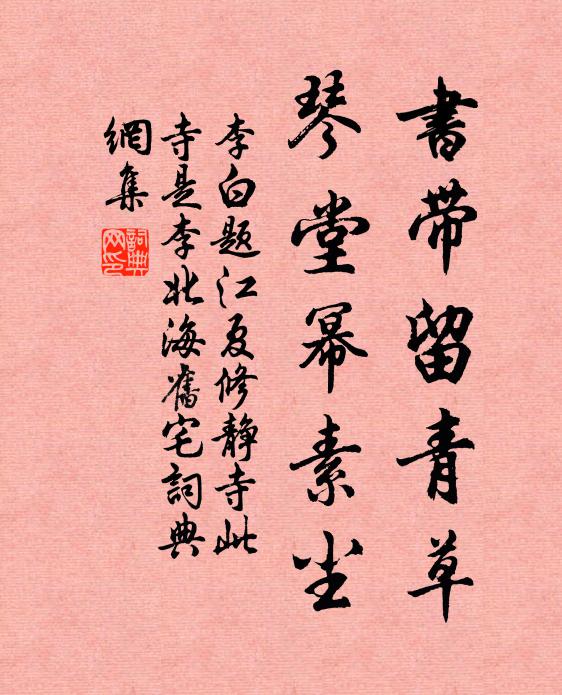 書带留青草
琴堂幂素尘
李白题江夏修静寺此
寺是李北海舊宅詞典
網集
詞典
网印